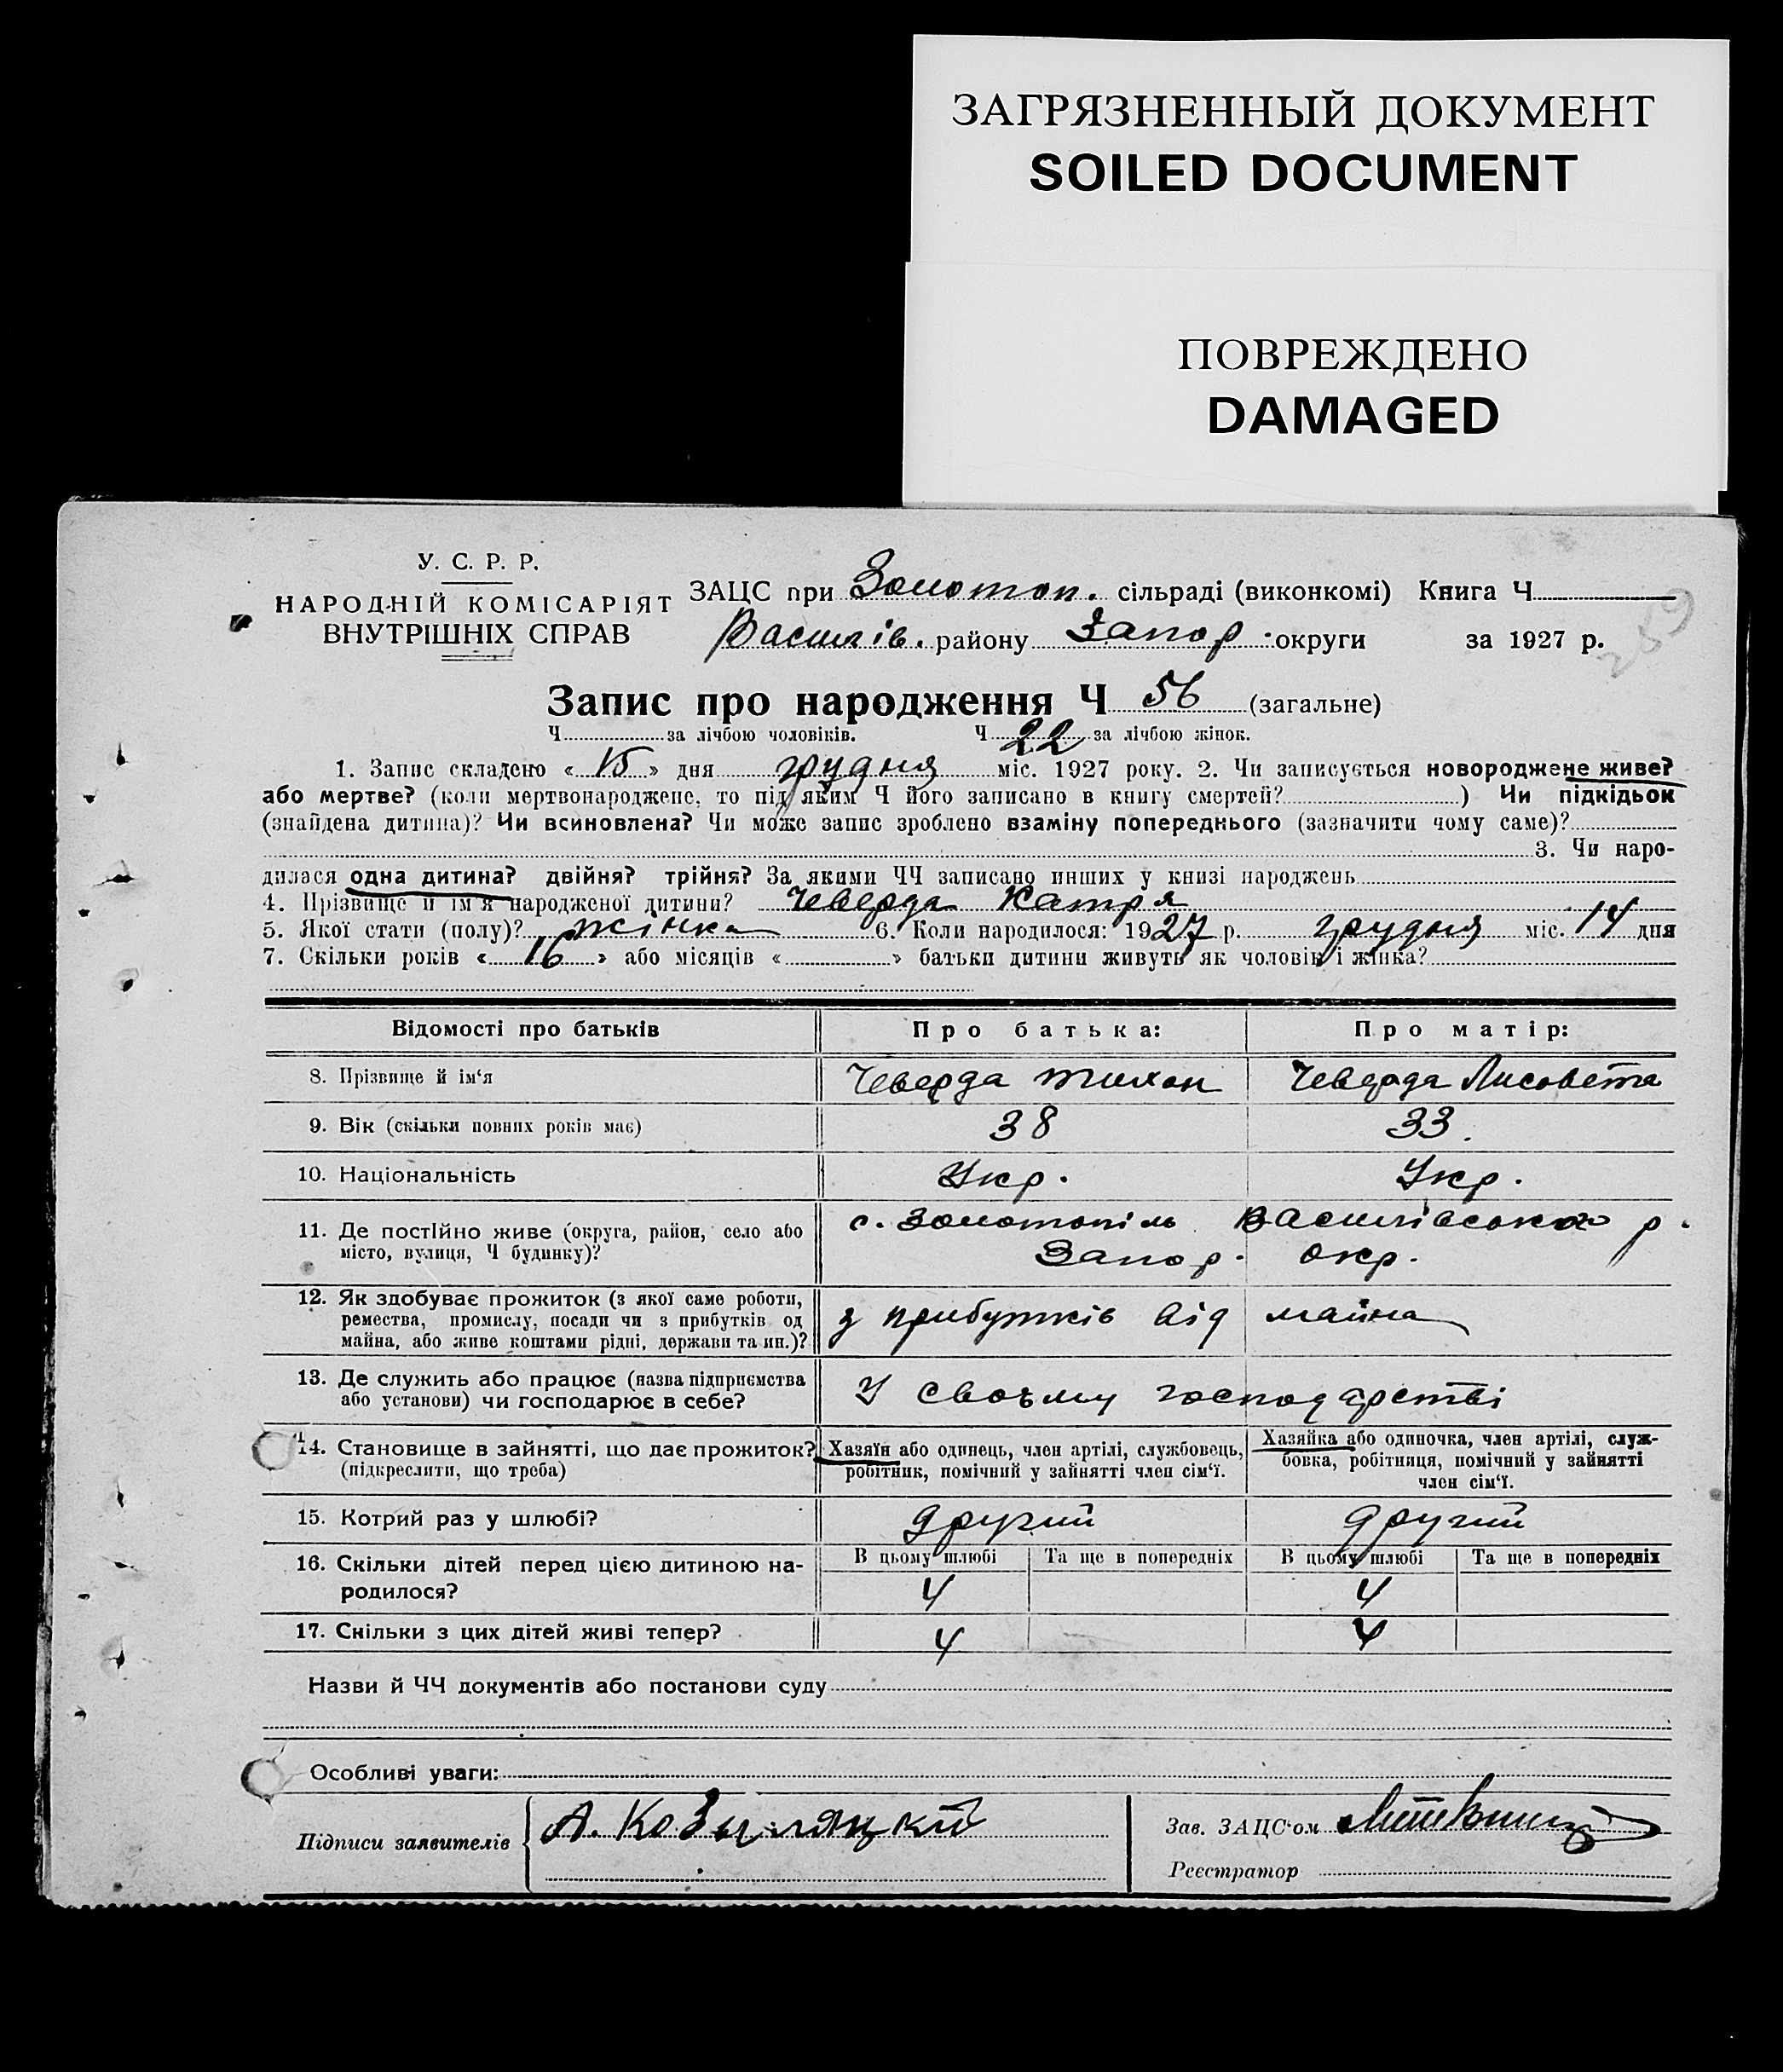 ЗАГРЯЗНЕННЫЙ ДОКУМЕНТ
SOILED DOCUMENT
ПОВРЕЖДЕНО
DAMAGED
У. С. Р. Р.
НАРОДНІЙ КОМІСАРІЯТ
ВНУТРІШНІХ СПРАВ
ЗАЦС при Золотоп. сільраді (виконкомі) Книга Ч
Василів. району Запор. округи за 1927 р.
259
Запис про народження Ч 56 (загальне)
Ч за лічбою чоловіків. Ч 22 за лічбою жінок.
1. Запис складено « 15 » дня грудня міс. 1927 року. 2. Чи записується новороджене живе?
або мертве? (коли мертвонароджене, то під яким Ч його записано в книгу смертей? ) Чи підкідьок
(знайдена дитина)? Чи всиновлена? Чи може запис зроблено взаміну попереднього (зазначити чому саме)?
3. Чи наро-
дилася одна дитина? двійня? трійня? За якими ЧЧ записано инших у книзі народжень
4. Прізвище й ім'я народженої дитини? Чеверда Катря
5. Якої стати (полу)? жінка 6. Коли народилося: 1927 р. грудня міс. 14 дня
7. Скільки років « 16 » або місяців « » батьки дитини живуть як чоловік і жінка?
Відомості про батьків Про батька: Про матір:
8. Прізвище й ім'я Чеверда Тихон Чеверда Лисовета
9. Вік (скільки повних років має) 38 33.
10. Національність Укр. Укр.
11. Де постійно живе (округа, район, село або с. Золотопіль Василівського р.
місто, вулиця, Ч будинку)? Запор. окр.
12. Як здобуває прожиток (з якої саме роботи,
ремества, промислу, посади чи з прибутків од з прибутків від майна
майна, або живе коштами рідні, держави та ин.)?
13. Де служить або працює (назва підприємства У своъму господарстві
або установи) чи господарює в себе?
14. Становище в зайнятті, що дає прожиток? Хазяїн або одинець, член артілі, службовець, Хазяйка або одиночка, член артілі, служ-
(підкреслити, що треба) робітник, помічний у зайнятті член сім'ї. бовка, робітниця, помічний у зайнятті
член сім'ї.
15. Котрий раз у шлюбі? другий другий
16. Скільки дітей перед цією дитиною на- В цьому шлюбі Та ще в попередніх В цьому шлюбі Та ще в попередніх
родилося? 4 4
17. Скільки з цих дітей живі тепер? 4 4
Назви й ЧЧ документів або постанови суду
Особливі уваги:
Підписи заявителів А. Кобыляцкій Зав. ЗАЦС'ом
Реєстратор